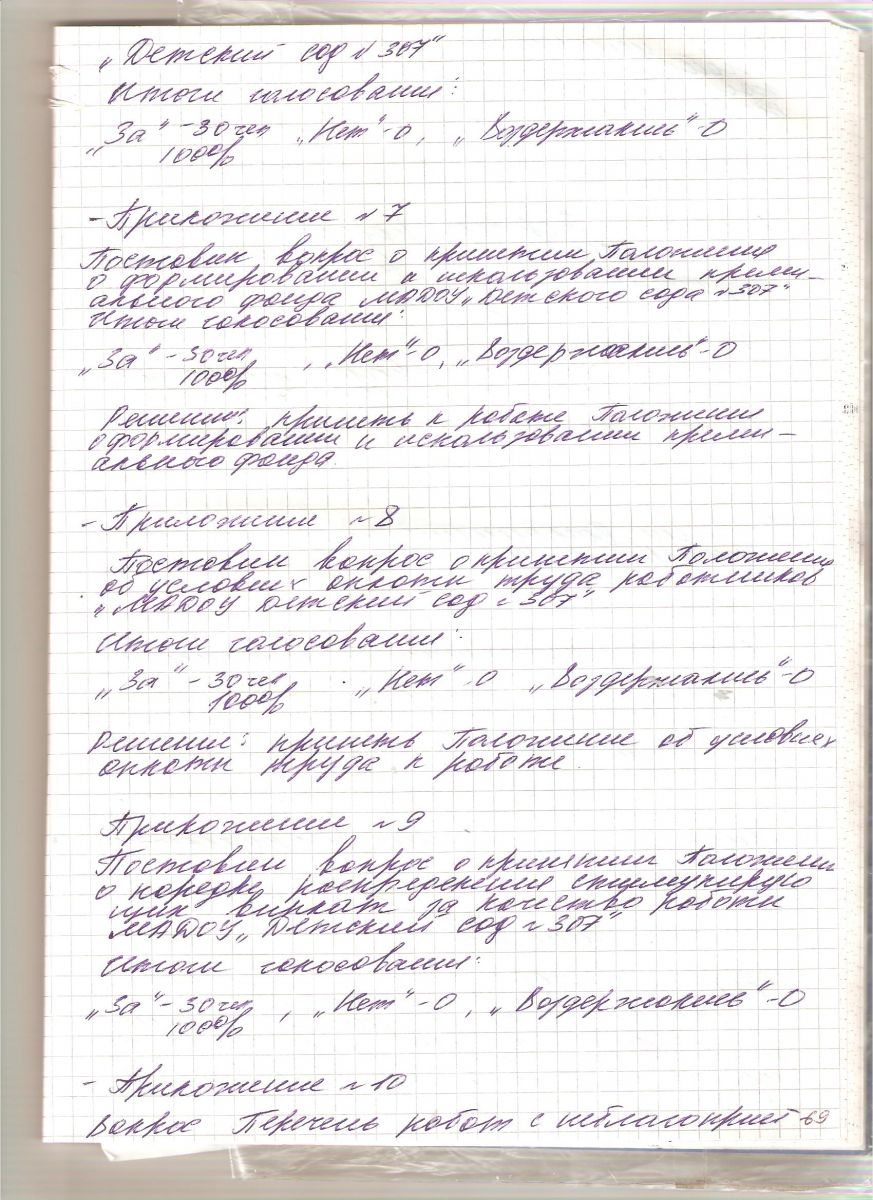 „Детский сад № 307"
Итоги голосования:
„За" - 30 чел „Нет" - 0, „Воздержались" - 0
100%
- Приложение № 7
Поставлен вопрос о принятии Положения
о формировании и использовании преми-
ального фонда МАДОУ „Детского сада № 307"
Итоги голосования:
„За" - 30 чел , „Нет" - 0, „Воздержались" - 0
100%
Решение: принять к работе Положение
о формировании и использовании преми-
ального фонда.
- Приложение № 8
Поставлен вопрос о принятии Положения
об условиях оплаты труда работников
„МАДОУ Детский сад № 307"
Итоги голосования:
„За" - 30 чел . „Нет" - 0 „Воздержались" - 0
100%
Решение: принять Положение об условиях
оплаты труда к работе.
Приложение № 9
Поставлен вопрос о принятии Положения
о порядке распределения стимулирую
щих выплат за качество работы
МАДОУ „Детский сад № 307"
Итоги голосования:
„За" - 30 чел , „Нет" - 0, „Воздержались" - 0
100%
- Приложение № 10
Вопрос Перечень работ с неблагоприят- 69